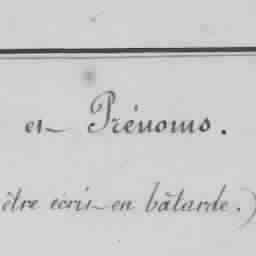 et Prénoms.
être écrit en bâtarde.)